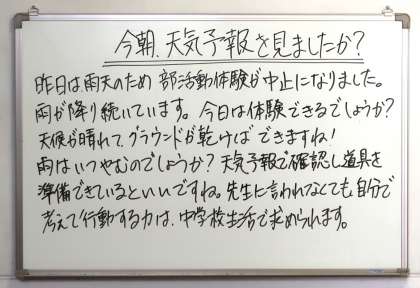 今朝、天気予報を見ましたか?
昨日は雨天のため 部活動体験が中止になりました。
雨が降り続いています。今日は体験できるでしょうか?
天候が晴れて、グラウンドが乾けば できますね!
雨はいつやむのでしょうか? 天気予報で確認し道具を
準備できているといいですね。先生に言われなくても、自分で
考えて行動する力は、中学校生活で求められます。